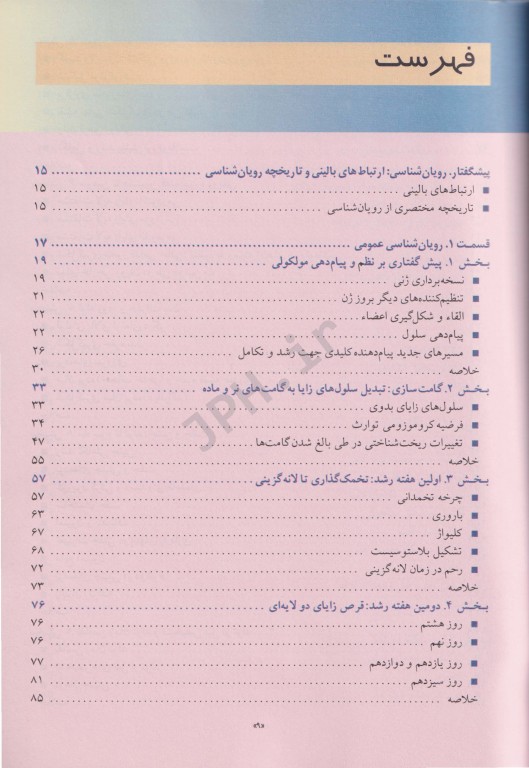 فهرست
پیشگفتار. رویان‌شناسی: ارتباط‌های بالینی و تاریخچه رویان‌شناسی ۱۵
■ ارتباط‌های بالینی ۱۵
■ تاریخچه مختصری از رویان‌شناسی ۱۵
قسمت ۱. رویان‌شناسی عمومی ۱۷
بخش ۱. پیش گفتاری بر نظم و پیام‌دهی مولکولی ۱۹
■ نسخه‌برداری ژنی ۱۹
■ تنظیم‌کننده‌های دیگر بروز ژن ۲۱
■ القاء و شکل‌گیری اعضاء ۲۲
■ پیام‌دهی سلول ۲۲
■ مسیرهای جدید پیام‌دهنده کلیدی جهت رشد و تکامل ۲۶
خلاصه ۳۰
بخش ۲. گامت‌سازی: تبدیل سلول‌های زایا به گامت‌های نر و ماده ۳۳
■ سلول‌های زایای بدوی ۳۳
■ فرضیه کروموزومی توارث ۳۴
■ تغییرات ریخت‌شناختی در طی بالغ شدن گامت‌ها ۴۷
خلاصه ۵۵
بخش ۳. اولین هفته رشد: تخمک‌گذاری تا لانه‌گزینی ۵۷
■ چرخه تخمدانی ۵۷
■ باروری ۶۳
■ کلیواژ ۶۷
■ تشکیل بلاستوسیست ۶۸
■ رحم در زمان لانه‌گزینی ۷۲
خلاصه ۷۳
بخش ۴. دومین هفته رشد: قرص زایای دو لایه‌ای ۷۶
■ روز هشتم ۷۶
■ روز نهم ۷۶
■ روز یازدهم و دوازدهم ۷۷
■ روز سیزدهم ۸۱
خلاصه ۸۵
«۹»
JPH.ir